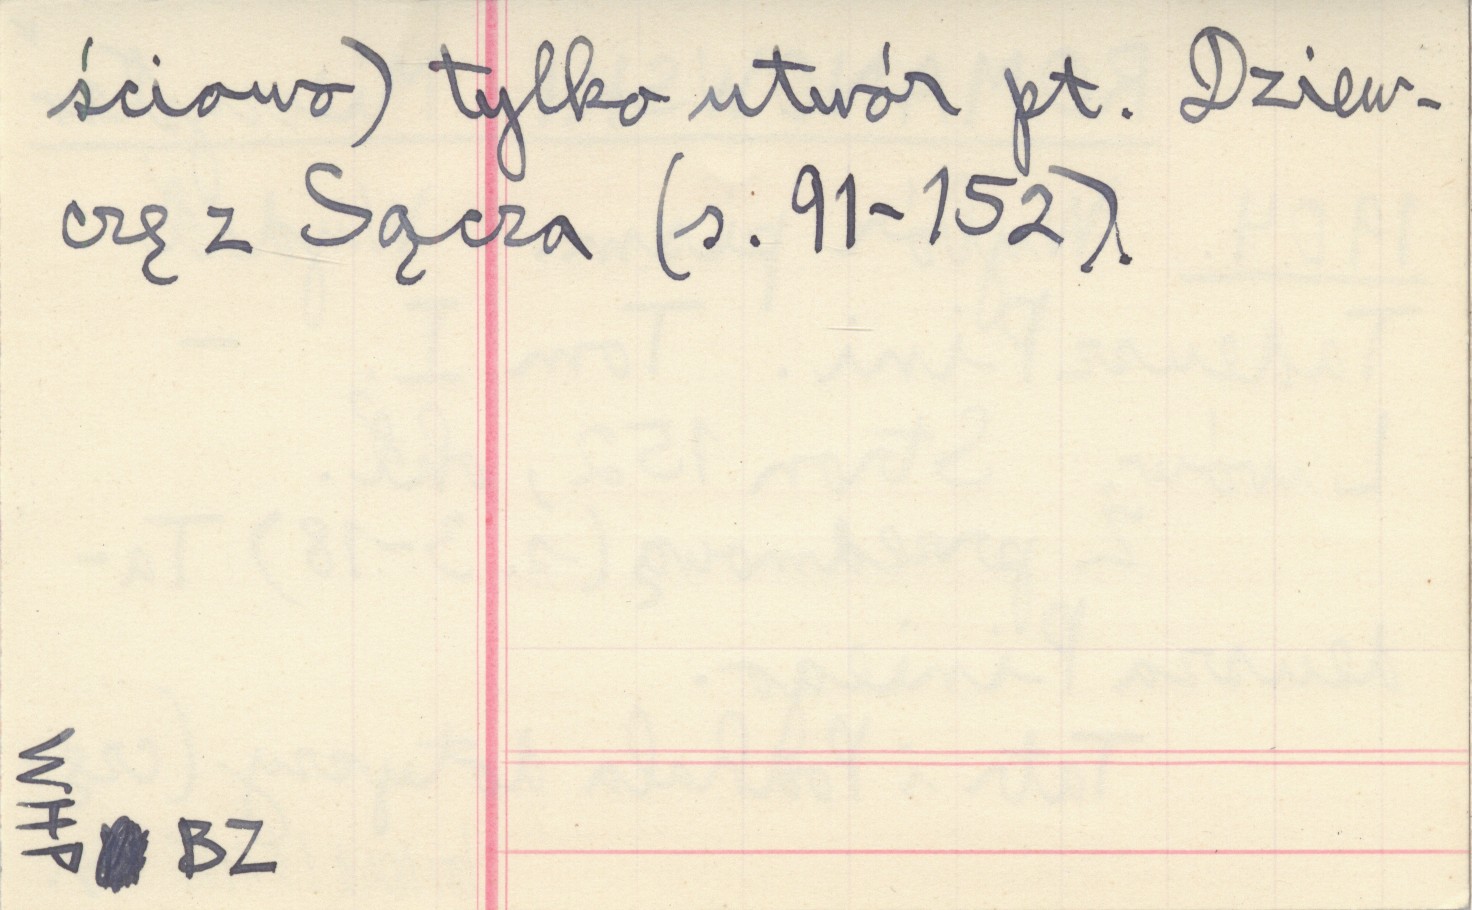 ściowo) tylko utwór pt. Dziew-
czę z Sącza (s. 91-152).
WHP
BZ